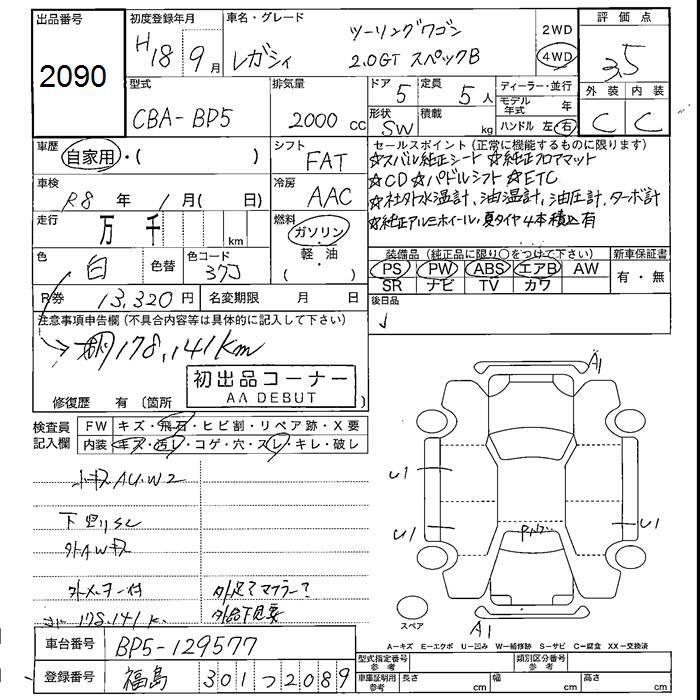 出品番号
2090
初度登録年月
H18年9月
車名・グレード
ツーリングワゴン
レガシィ 2.0GT スペックB
2WD
4WD
評価点
3.5
外装 内装
C C
型式
CBA-BP5
排気量
2000 cc
ドア 5
定員 5人
形状 SW
積載 kg
ディーラー・並行
モデル年式 年
ハンドル 左・右
車歴
自家用・( )
シフト
FAT
車検
R8年 1月( 日)
冷房
AAC
走行
万 千 km
燃料
ガソリン
軽・油
( )
色
白
色替
色コード
37J
R券
13,320円
名変期限 月 日
セールスポイント (正常に機能するものに限ります)
☆スバル純正シート ☆純正フロアマット
☆CD☆パドルシフト ☆ETC
☆社外水温計、油温計、油圧計、ターボ計
☆純正アルミホイール・夏タイヤ4本積込有
装備品(純正品に限り○をつけて下さい)
PS PW ABS エアB AW
SR ナビ TV カワ
新車保証書
有・無
後日品
注意事項申告欄(不具合内容等は具体的に記入して下さい)
178,141km
初出品コーナー
AA DEBUT
修復歴 有 〔箇所 〕
検査員記入欄
FW キズ・飛石・ヒビ割・リペア跡・X要
内装 キズ・汚レ・コゲ・穴・スレ・キレ・破レ
小キズ AU.W2
下回りSC
外AWキズ
外メーター付
178.141k
外足マフラー
外品下見要
A1
U1
U1
U1
A1
スペア
A-キズ E-エクボ U-凹み W-補修跡 S-サビ C-腐食 XX-交換済
車台番号
BP5-129577
登録番号
福島 301 つ 2089
型式指定番号 参考
類別区分番号 参考
車庫証明用 参考
長さ cm
幅 cm
高さ cm